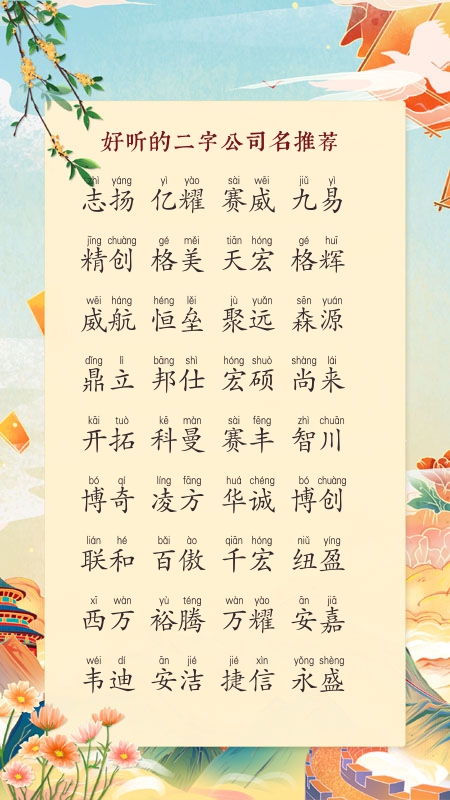 好听的二字公司名推荐
zhì yáng yì yào sài wēi jiǔ yì
志扬 亿耀 赛威 九易
jīng chuàng gé měi tiān hóng gé huī
精创 格美 天宏 格辉
wēi háng héng lěi jù yuǎn sēn yuán
威航 恒垒 聚远 森源
dǐng lì bāng shì hóng shuò shàng lái
鼎立 邦仕 宏硕 尚来
kāi tuò kē màn sài fēng zhì chuān
开拓 科曼 赛丰 智川
bó qí líng fāng huá chéng bó chuàng
博奇 凌方 华诚 博创
lián hé bǎi ào qiān hóng niǔ yíng
联和 百傲 千宏 纽盈
xī wàn yù téng wàn yào ān jiā
西万 裕腾 万耀 安嘉
wéi dí ān jié jié xìn yǒng shèng
韦迪 安洁 捷信 永盛